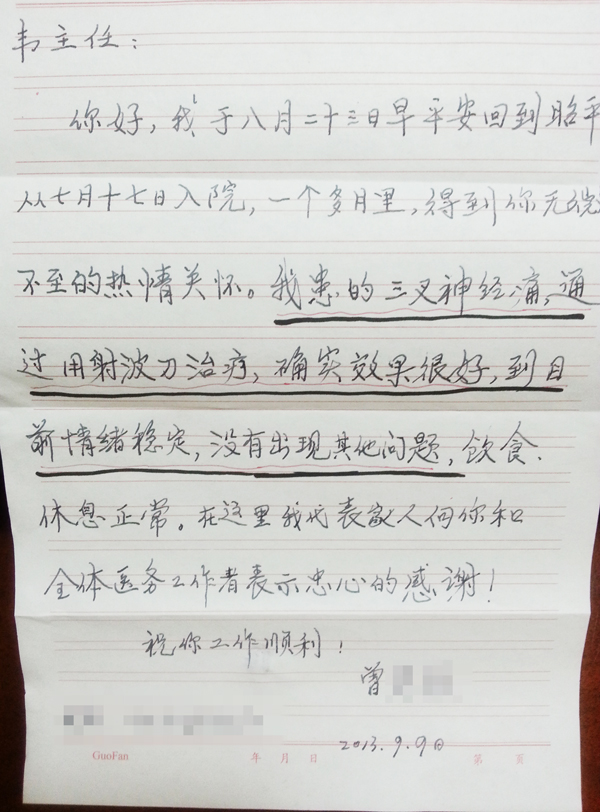 韦主任：
你好，我于八月二十三日早平安回到昭平
从七月十七日入院，一个多月里，得到你无微
不至的热情关怀。我患的三叉神经痛，通
过用射波刀治疗，确实效果很好，到目
前情绪稳定，没有出现其他问题，饮食.
休息正常。在这里我代表家人向你和
全体医务工作者表示忠心的感谢！
祝你工作顺利！
曾
2013.9.9日
GuoFan 年 月 日 第 页